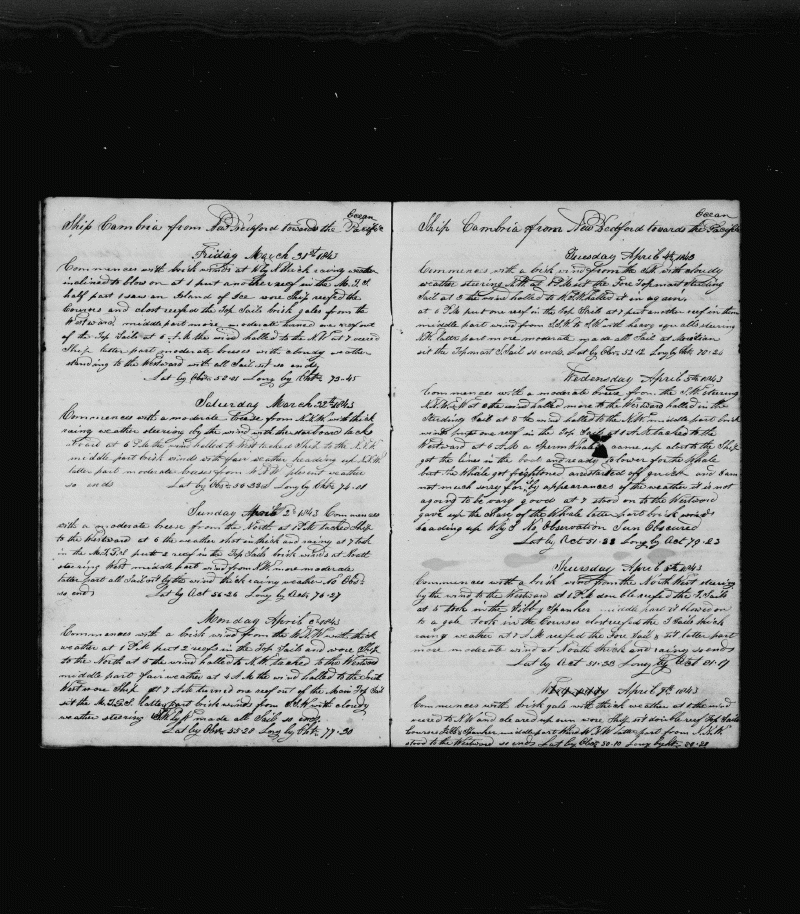 Ocean
Ship Cambria from New Bedford towards the Pacific
Friday March 31st 1843
Commences with brisk winds at W by N thick rainy weather
inclined to blow on at 1 put another reef in the M. T. S.
half past 1 saw an Island of Ice wore Ship reefed the
Courses and close reefed the Top Sails brisk gales from the
Westward middle part more moderate turned one reef out
of the Top Sails at 6 A.M. the wind halled to the N.W. at 7 veered
Ship latter part moderate breeses with cloudy weather
standing to the Westward with all Sail set so ends
Lat by Obs Long by Chr 73-45
Saturday March 1843
Commences with a moderate breese from N.N.W. with thick
rainy weather steering by the wind with the starboard tacks
aboard at 6 P.M. the wind halled to West tacked Ship to the
middle part brisk winds with fair weather heading up
latter part moderate breeses from pleasent weather
so ends Lat by Obs Long by Chr 74-11
Sunday April 2d 1843 Commences
with a moderate breese from the North at 1 P.M. tacked Ship
to the Westward at 6 the weather shut in thick and rainy at 7 took
in the M. T. G. S. put 2 reef in the Top Sails brisk winds at North
steering West middle part wind from N.W. more moderate
latter part all Sail set by the wind thick rainy weather No Obs
so ends Lat by Act 56-26 Long by Act 76-27
Monday April 3d 1843
Commences with a brisk wind from the with thick
weather at 1 P.M. put 2 reefs in the Top Sails and wore Ship
to the North at 5 the wind halled to N.W. tacked to the Westward
middle part fair weather at 4 A.M. the wind halled to the South
West wore Ship at 7 A.M. turned one reef out of the Main Top Sail
set the M. T. G. S. latter part brisk winds from with cloudy
weather steering made all Sail so ends
Lat by Obs 55-28 Long by Chr 77-20
Ocean
Ship Cambria from New Bedford towards the Pacific
Tuesday April 4th 1843
Commences with a brisk wind from the with cloudy
weather steering at 1 P.M. set the Fore Topmast steering
Sail at 3 the wind halled to halled it in again
at 6 P.M. put one reef in the Top Sails at 7 put another reef in them
middle part wind from to with heavy squalls steering
latter part more moderate made all Sail at Meridian
set the Topmast S. Sail so ends Lat by Obs 53-12 Long by Chr 79-24
Wednesday April 5th 1843
Commences with a moderate breese from the S.W. steering
at the wind halled more to the Westward halled in the
Steiding Sail at 8 the wind halled to the middle part brisk
winds put a reef in the Top Sails at tacked to the
Westward at 6 A.M. a Sperm Whale came up close to the Ship
got the lines in the boat and ready to lower for the Whale
but the Whale got frightened and started off quick and I am
not much sorry for by appearances of the weather it is not
agoing to be very good at 7 stood on to the Westward
gave up the Chase of the Whale latter part brisk winds
heading up W by S No Observation Sun Obscured
Lat by Act 51-33 Long by Act 79-23
Thursday April 6th 1843
Commences with a brisk wind from the North West steering
by the wind to the Westward at 1 P.M. double reefed the T. Sails
at 5 took in the Jibb & Spanker middle part it blowed on
to a gale took in the Courses close reefed the T. Sails thick
rainy weather at 7 A.M. reefed the Fore Sail & set latter part
more moderate wind at North thick and rainy so ends
Lat by Act 51-33 Long by Act 81-17
April 7th 1843
Commences with brisk gale with thick weather at 6 the wind
veered to S.W. and cleared up wore Ship set double reef Top Sails
Courses Jibb & Spanker middle part Wind latter part from
stood to the Westward so ends Lat by Obs 50-10 Long by